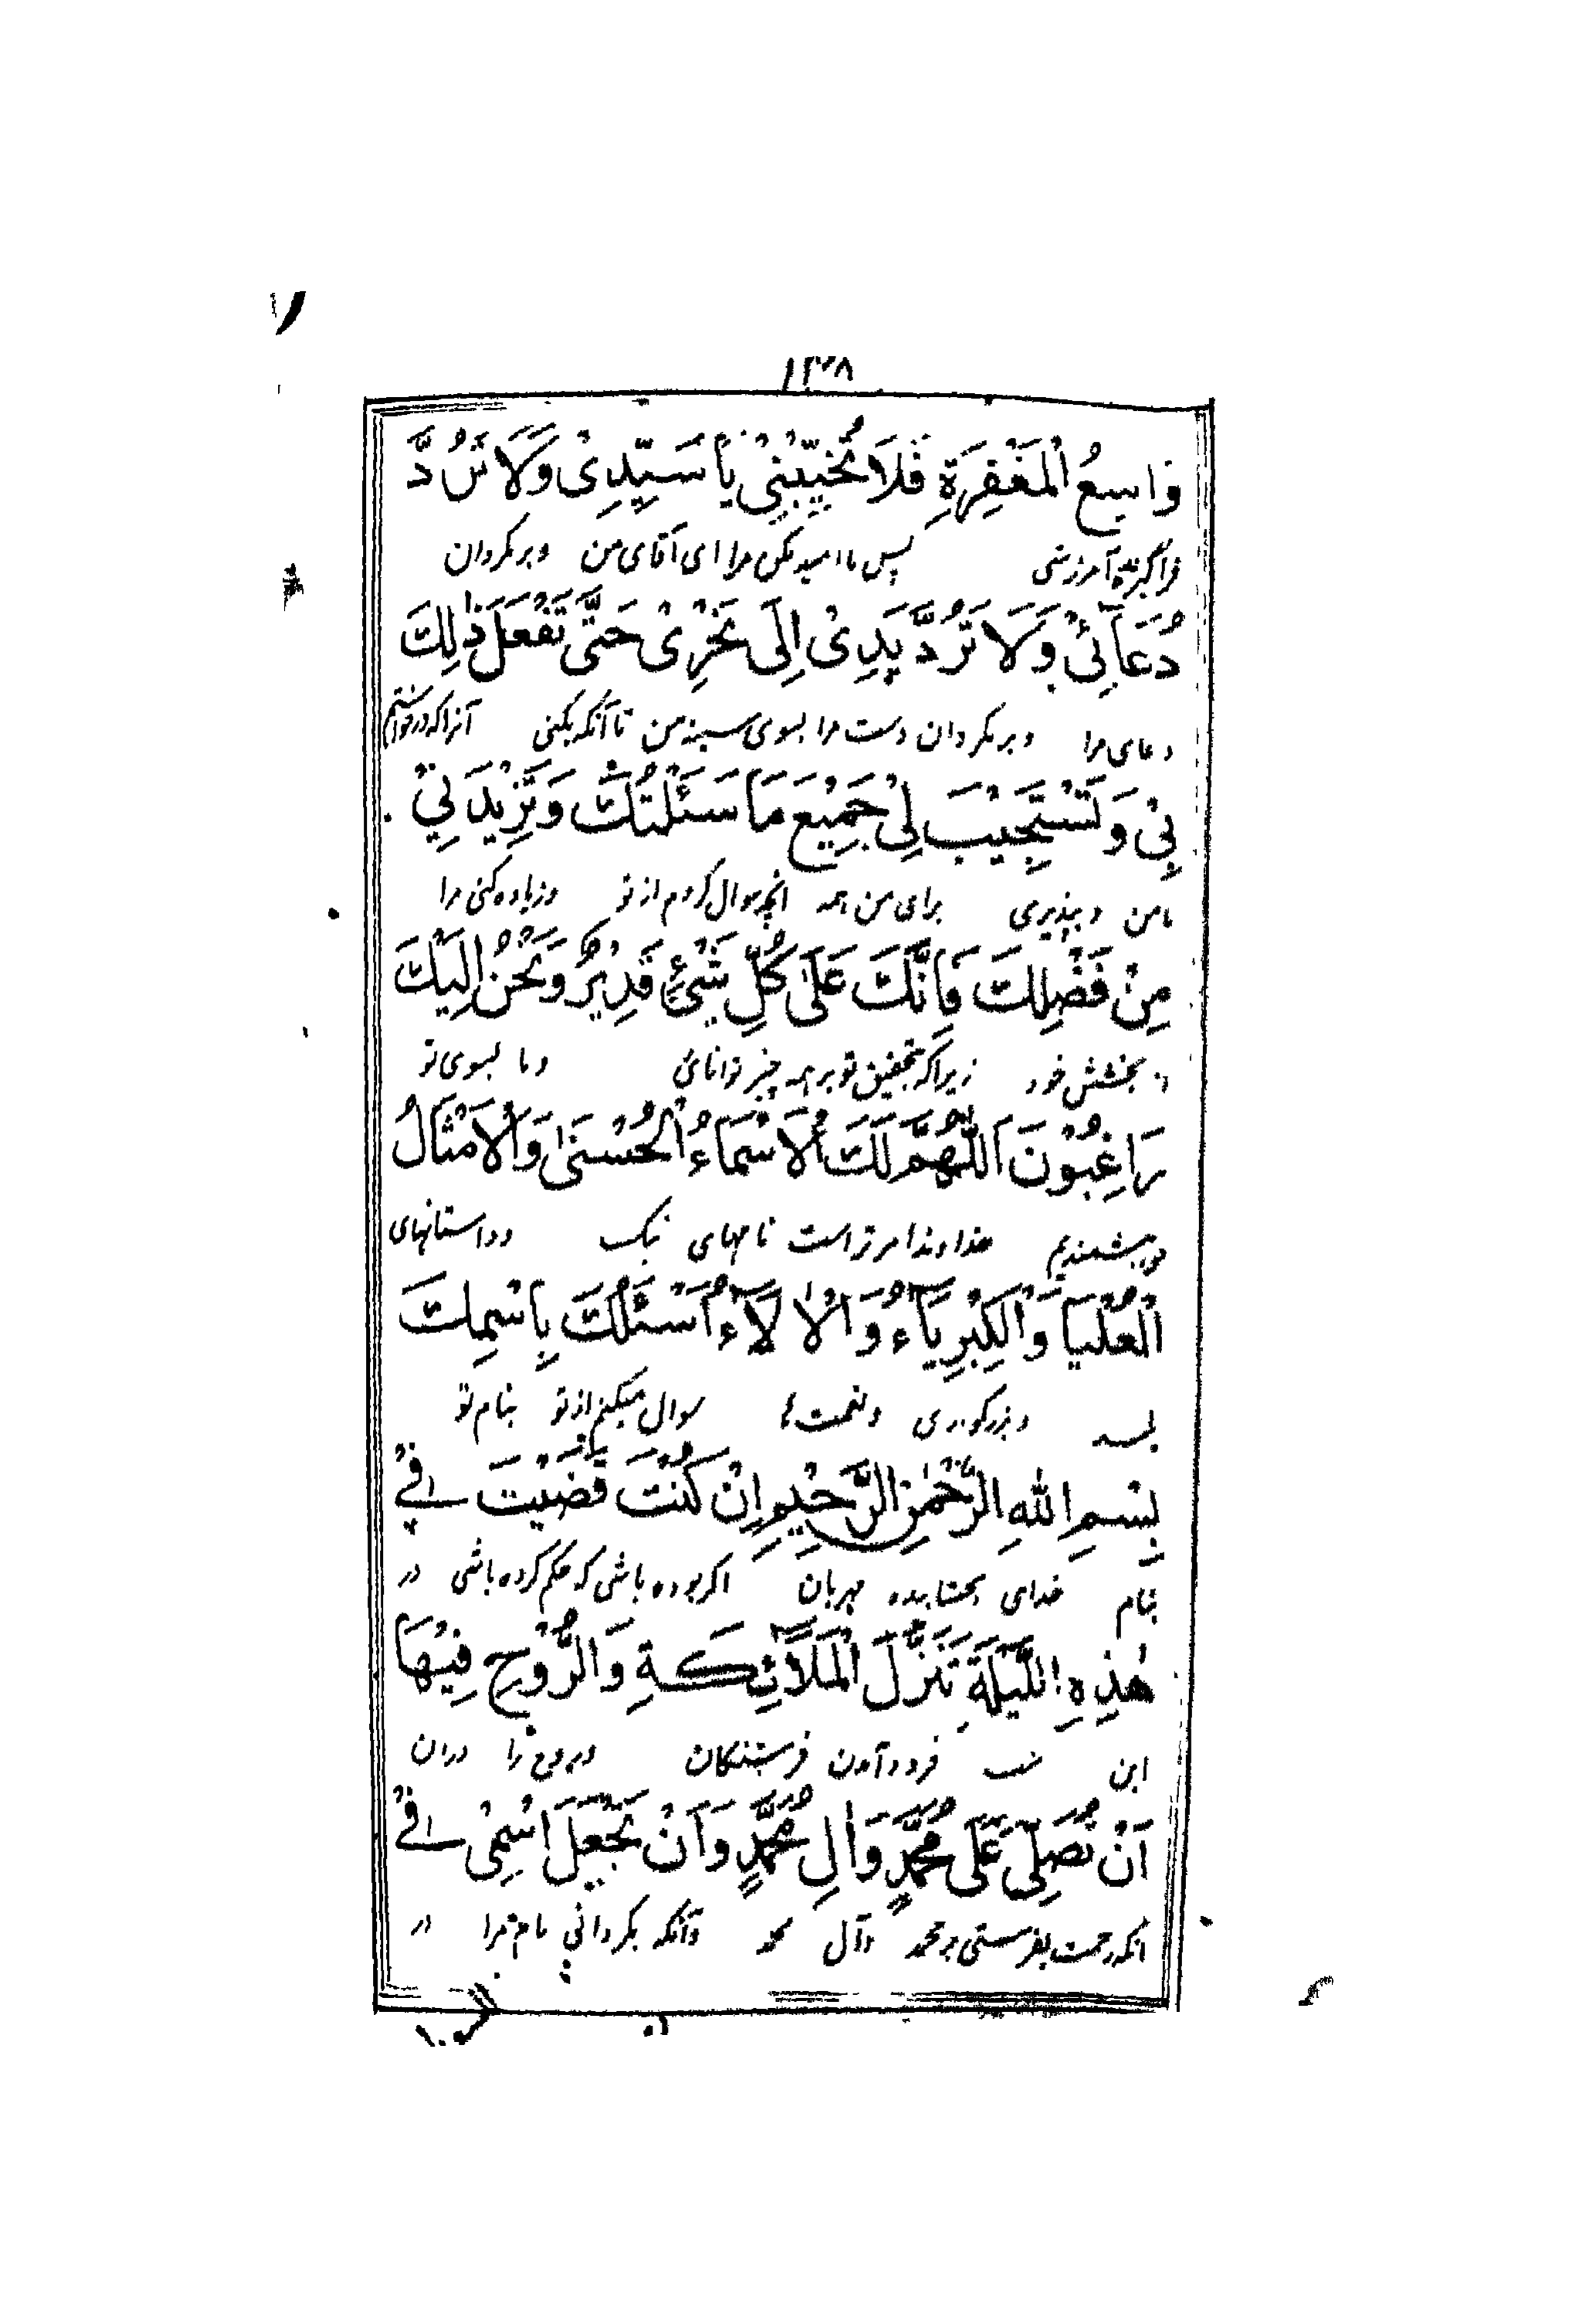 ۱۳۸
وَاسِعُ الْمَغْفِرَةِ فَلَا تُخَيِّبْنِيْ يَا سَيِّدِىْ وَلَا تَرُدَّ
فراگیرنده آمرزشی پس ناامید مکن مرا ای آقای من و برمگردان
دُعَآئِیْ وَلَا تَرُدَّ يَدِىْ اِلَى نَحْرِىْ حَتَّى تَفْعَلَ ذٰلِكَ
دعای مرا و برمگردان دست مرا بسوی سینه من تا آنکه بکنی آنرا که درخواستم
بِيْ وَ تَسْتَجِيْبَ لِيْ جَمِيْعَ مَا سَئَلْتُكَ وَ تَزِيْدَنِيْ
بامن و بپذیری برای من همه انچه سوال کردم از تو و زیاده کنی مرا
مِنْ فَضْلِكَ فَاِنَّكَ عَلٰى كُلِّ شَيْءٍ قَدِيْرٌ وَ نَحْنُ اِلَيْكَ
از بخشش خود زیرا که بتحقیق تو بر همه چیز توانائی و ما بسوی تو
رَاغِبُوْنَ اَللّٰهُمَّ لَكَ الْاَسْمَاءُ الْحُسْنٰى وَ الْاَمْثَالُ
خداوندا مر تراست نامهای نیک و داستانهای
الْعُلْيَا وَ الْكِبْرِيَآءُ وَ الْاٰلَآءُ اَسْئَلُكَ بِاسْمِكَ
بلند و بزرگواری و نعمتها سوال میکنم از تو بنام تو
بِسْمِ اللّٰهِ الرَّحْمٰنِ الرَّحِيْمِ اِنْ كُنْتَ قَضَيْتَ فِيْ
بنام خدای بخشاینده مهربان اگر بوده باشی که حکم کرده باشی در
هٰذِهِ اللَّيْلَةِ تَنَزُّلَ الْمَلَآئِكَةِ وَ الرُّوْحِ فِيْهَا
این شب فرود آمدن فرشتگان و روح را دران
اَنْ تُصَلِّىَ عَلٰى مُحَمَّدٍ وَ اٰلِ مُحَمَّدٍ وَ اَنْ تَجْعَلَ اسْمِىْ فِيْ
آنکه رحمت بفرستی بر محمد و آل محمد و آنکه بگردانی نام مرا در